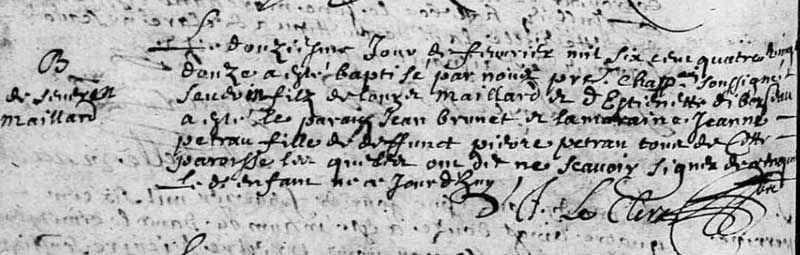 B
de seuerin
maillard
Le douziesme Jour de feburier mil six cent quatre vingt
douze a esté baptisé par nous pres. chapp. soussigné
seuerin filz de louys maillard et d'Estiennette
a esté le parain Jean brunet et la maraine Jeanne
petrau fille de deffunct pierre petrau tous de cette
paroisse lesquelz ont dit ne scavoir signer de ce
led enfant né ce Jourd'huy
Le Clerc